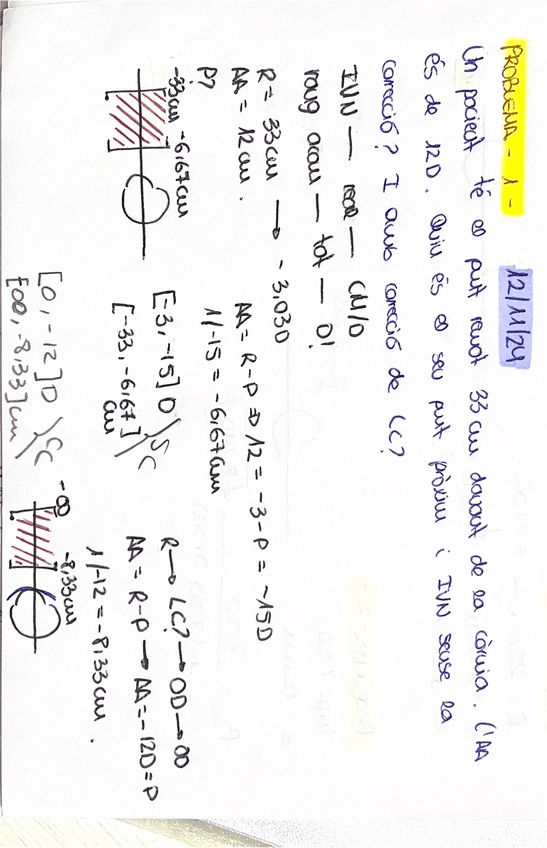 PROBLEMA - 1 - 12/11/24
Un pacient té el punt remot 33 cm davant de la còrnia. L'AA
és de 12D. Quin és el seu punt pròxim i IVN sense la
correcció? I amb correcció de LC?
IVN — real — CM/D
rang acom — tot — D!
R = 33cm → -3,03D
AA = 12cm.
P?
AA = R-P ⇒ 12 = -3-P = -15D
1/-15 = -6,67cm
-33cm -6,67cm
[-3, -15] D \ SC
[-33, -6,67]
cm
R → LC? → 0D → ∞
AA = R-P → AA = -12D = P
1/-12 = -8,33cm.
[0, -12] D \ CC
[∞, -8,33] cm
-∞ -8,33cm